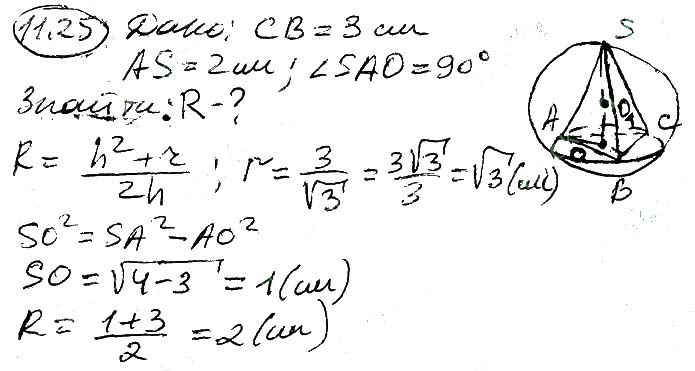 11.25 Дано: CB = 3 см
AS = 2 см; ∠SAO = 90°
Знайти: R - ?
R = (h² + r) / 2h ; r = 3/√3 = 3√3/3 = √3 (см)
SO² = SA² - AO²
SO = √4-3 = 1 (см)
R = (1+3)/2 = 2 (см)
S
A
O₁
C
O
B